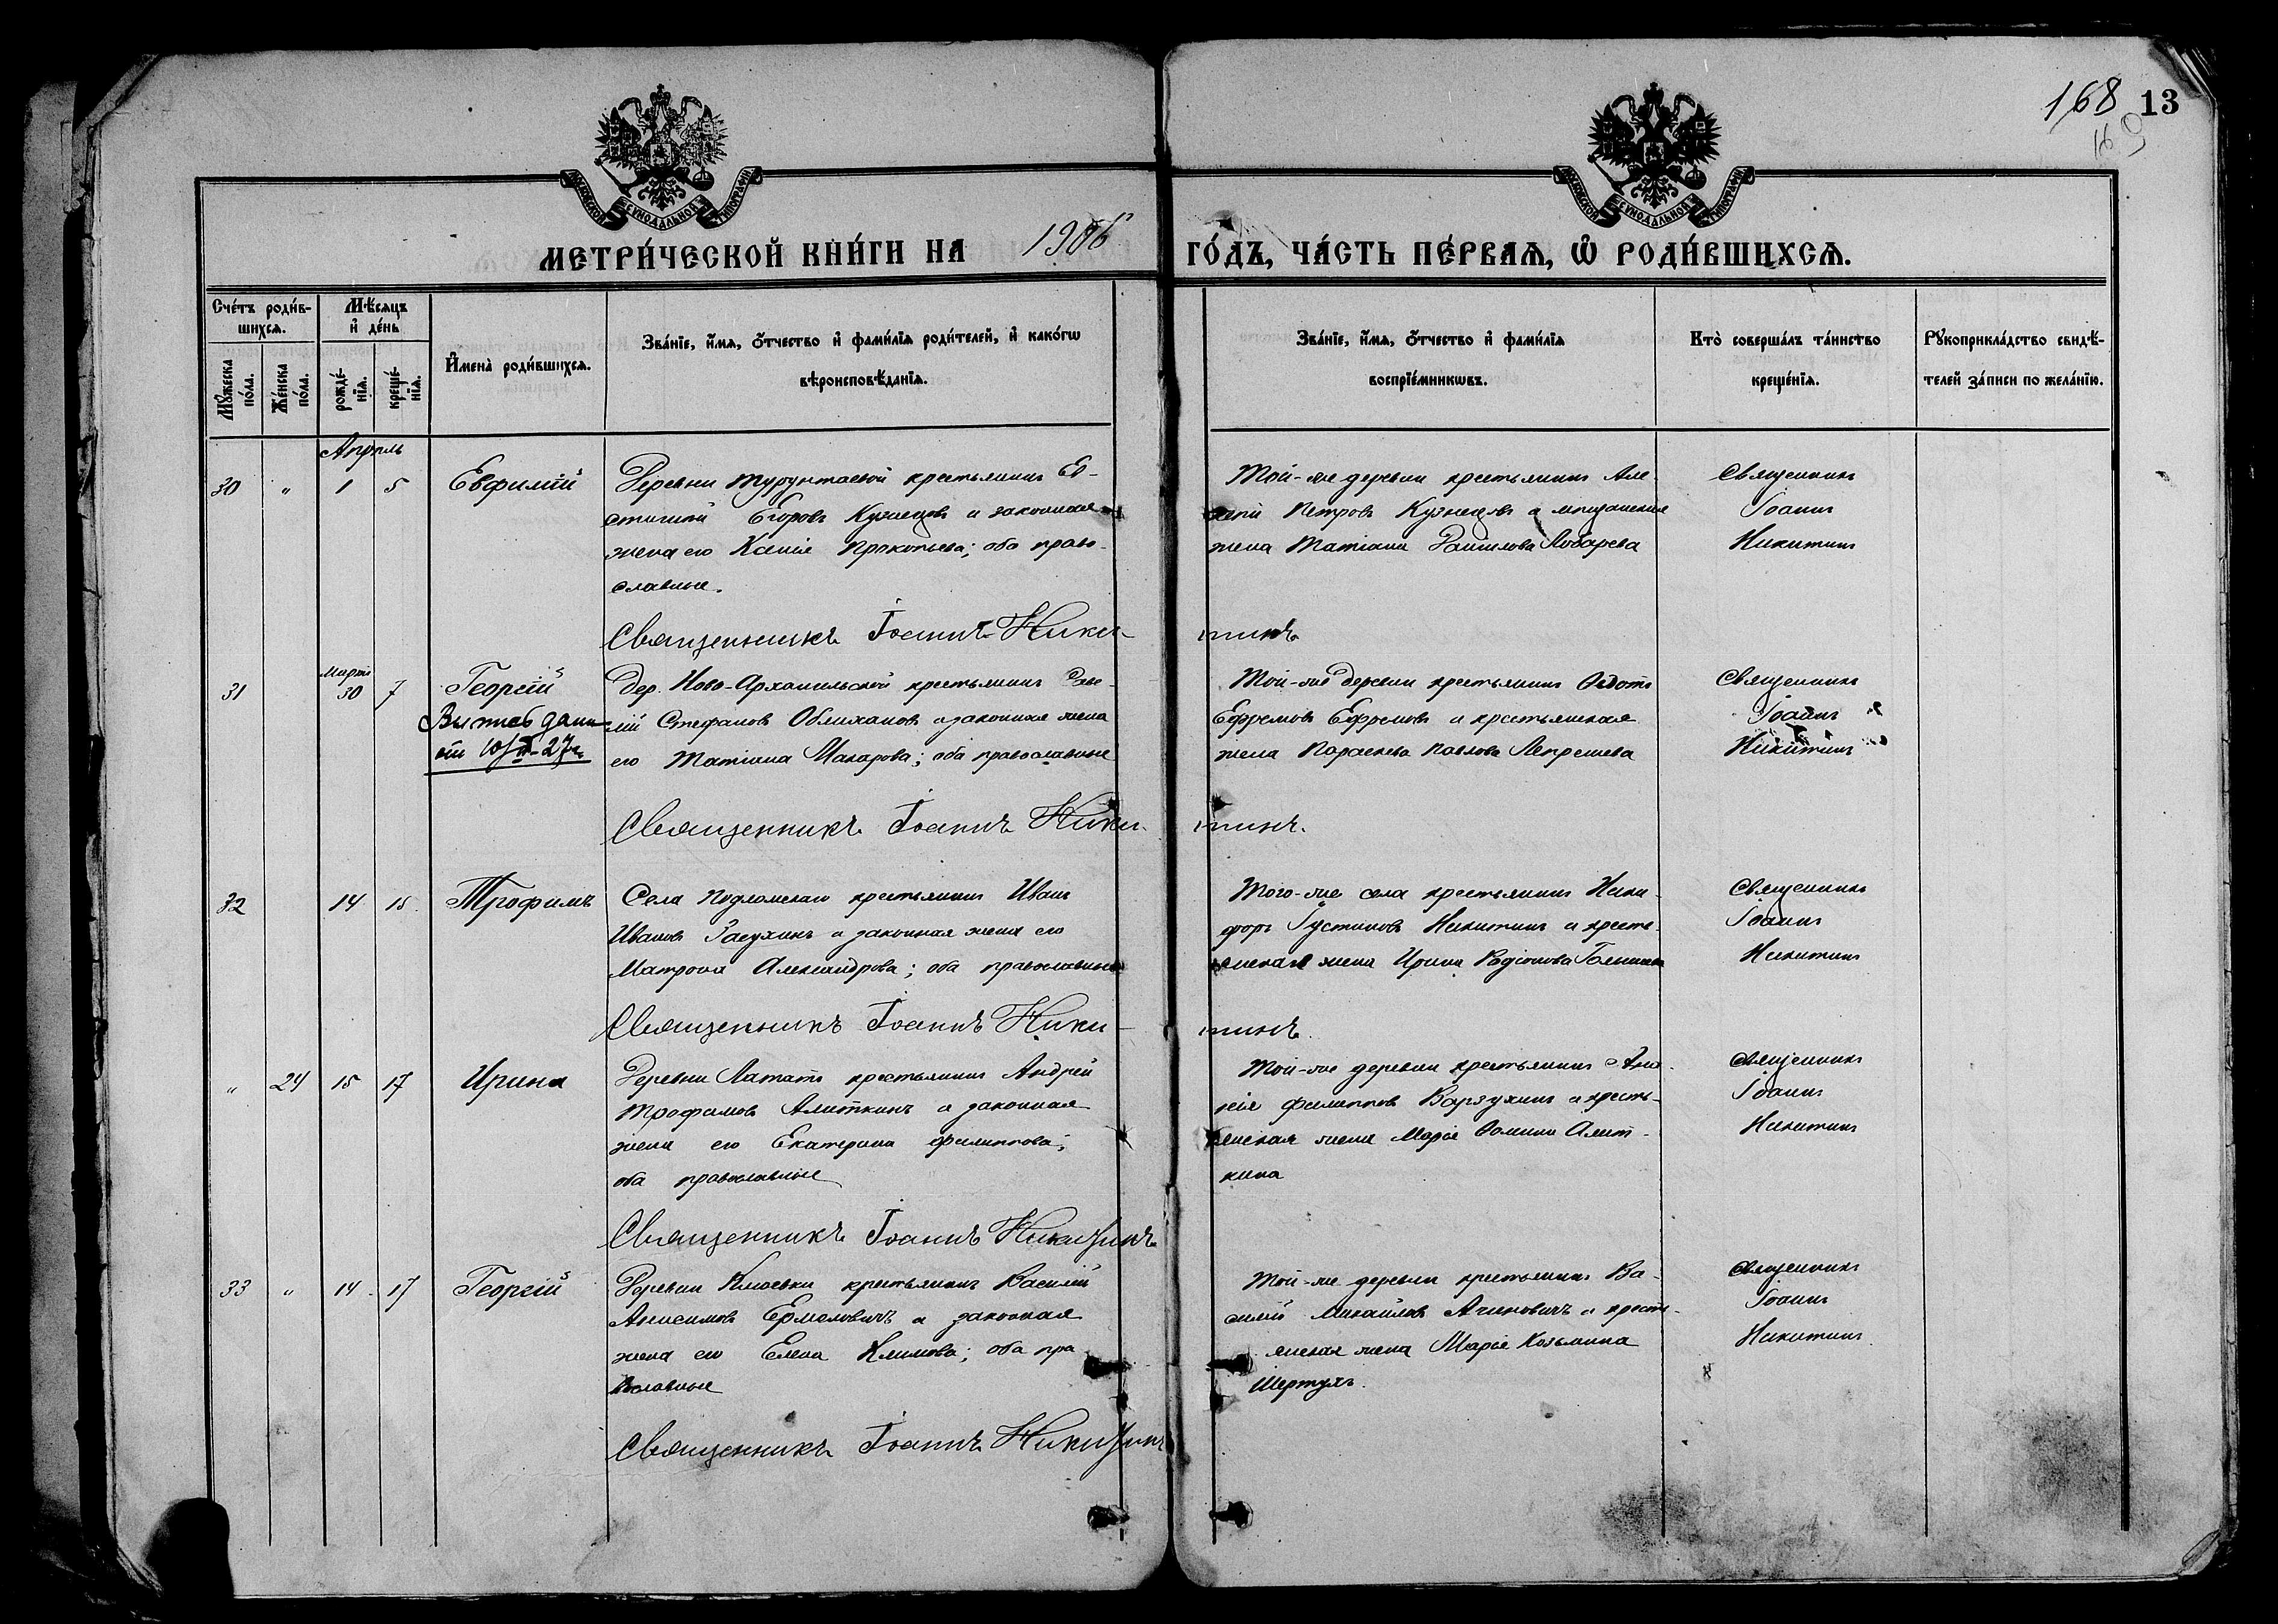 168 13
169
МОСКОВСКОЙ СѴНОДАЛЬНОЙ ТИПОГРАФІИ
МОСКОВСКОЙ СѴНОДАЛЬНОЙ ТИПОГРАФІИ
МЕТРИ́ЧЕСКОЙ КНИ́ГИ НА 1906 ГО́ДЪ, ЧА́СТЬ ПЕ́РВАѦ, Ѽ РОДИ́ВШИХСѦ.
Сче́тъ роди́в-
шихсѧ.
Мѣ́сѧцъ
и҆ де́нь
Мꙋ́жеска
по́ла.
Же́нска
по́ла.
рожде́-
нїѧ.
креще́-
нїѧ.
И҆мена̀ роди́вшихсѧ.
Зва́нїе, и҆́мѧ, ѻ҆́тчество и҆ фами́лїѧ роди́телей, и҆ како́гѡ
вѣроисповѣ́данїѧ.
Зва́нїе, и҆́мѧ, ѻ҆́тчество и҆ фами́лїѧ
воспрїе́мникѡвъ.
Кто̀ соверша́лъ та́инство
креще́нїѧ.
Рꙋкоприкла́дство свидѣ́-
телей за́писи по жела́нїю.
Апрѣль
30 " 1 5 Евфимій
Деревни Турунтаевой крестьянинъ Ев-
стигней Егоровъ Кузнецовъ и законная
жена его Ксенія Прокопьева; оба право-
славные.
Той-же деревни крестьянинъ Але-
ксѣй Петровъ Кузнецовъ и мѣщанская
жена Татіана Даніилова Лобарева
Священникъ
Іоаннъ
Никитинъ
Священникъ Іоаннъ Ники-
тинъ
31 Мартъ 30 7 Георгій
Выпись дана
10/II-27г.
Дер. Ново-Архангельской крестьянинъ
Стефановъ и законная жена
его Татіана Макарова; оба православные
Той-же деревни крестьянинъ Ѳедотъ
Ефремовъ Ефремовъ и крестьянская
жена Параскева Павлова
Священникъ
Іоаннъ
Никитинъ
Священникъ Іоаннъ Ники-
тинъ.
32 14 15 Трофимъ
Села Подломскаго крестьянинъ Иванъ
Ивановъ Засухинъ и законная жена его
Матрона Александрова; оба православные
Того-же села крестьянинъ Ники-
форъ Іустиновъ Никитинъ и кресть-
янская жена Ирина Родіонова
Священникъ
Іоаннъ
Никитинъ
Священникъ Іоаннъ Ники-
тинъ.
" 24 15 17 Ирина
Деревни Лататъ крестьянинъ Андрей
Трофимовъ Алиткинъ и законная
жена его Екатерина Филиппова;
оба православные
Той-же деревни крестьянинъ Ана-
нія Филипповъ Варзухинъ и кресть-
янская жена Марія Ѳомина Алит-
кина
Священникъ
Іоаннъ
Никитинъ
Священникъ Іоаннъ Никитинъ
33 " 14 17 Георгій
Деревни крестьянинъ Василій
Анисимовъ Ермоловичъ и законная
жена его Елена Климова; оба пра
вославные
Той-же деревни крестьянинъ Ва-
силій Михайловъ и кресть-
янская жена Марія Козьмина
Шертухъ.
Священникъ
Іоаннъ
Никитинъ
Священникъ Іоаннъ Никитинъ